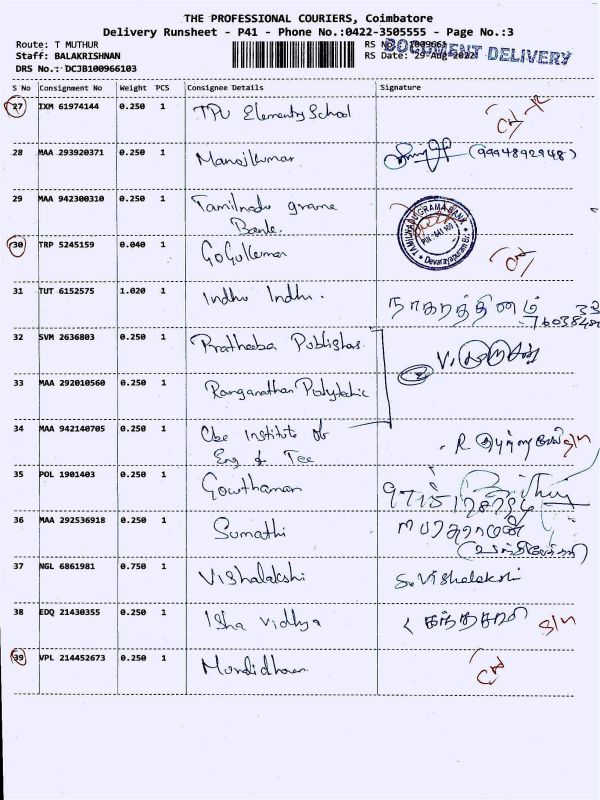 THE PROFESSIONAL COURIERS, Coimbatore
Delivery Runsheet - P41 - Phone No.:0422-3505555 - Page No.:3
Route: T MUTHUR
RS No.: 1009661
DOCUMENT DELIVERY
Staff: BALAKRISHNAN
RS Date: 29-Aug-2022
DRS No.: DCJB100966103
S No Consignment No Weight PCS Consignee Details Signature
27 IXM 61974144 0.250 1 TPU Elementry School
28 MAA 293920371 0.250 1 Manojkumar (9994892948)
29 MAA 942300310 0.250 1 Tamilnadu grama
Bank
TAMILNADU GRAMA BANK
Devarayapuram Br.
30 TRP 5245159 0.040 1 Gogulkumar
31 TUT 6152575 1.020 1 Indhu Indhu. நாகரத்தினம்
32 SVM 2636803 0.250 1 Pratheeba Publishas
33 MAA 292010560 0.250 1 Ranganathan Polytechic
34 MAA 942140705 0.250 1 Cbe Institute of
Eng & Tec
35 POL 1901403 0.250 1 Gowthaman
36 MAA 292536918 0.250 1 Sumathi
37 NGL 6861981 0.750 1 Vishalakshi S. Vishalakshi
38 EDQ 21430355 0.250 1 Isha Vidhya கந்தசாமி
39 VPL 214452673 0.250 1